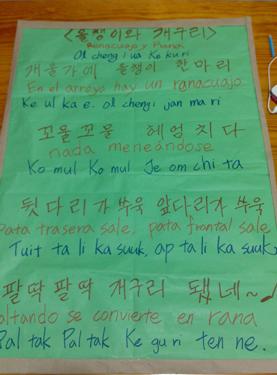 <올챙이와 개구리>
Renacuajo y Rana
Ol cheng i ua Ke ku ri
개울가에 올챙이 한마리
En el arroyo hay un ranacuajo
Ke ul ka e. ol cheng i jan ma ri
꼬물꼬물 헤엄치다
nada meneándose
Ko mul Ko mul Je om chi ta
뒷다리가 쑤욱 앞다리가 쑤욱
Pata trasera sale, pata frontal sale
Tuit ta li ka suuk, ap ta li ka suuk
팔딱팔딱 개구리 됐네~♪
altando se convierte en rana
Pal tak Pal tak Ke gu ri ten ne.